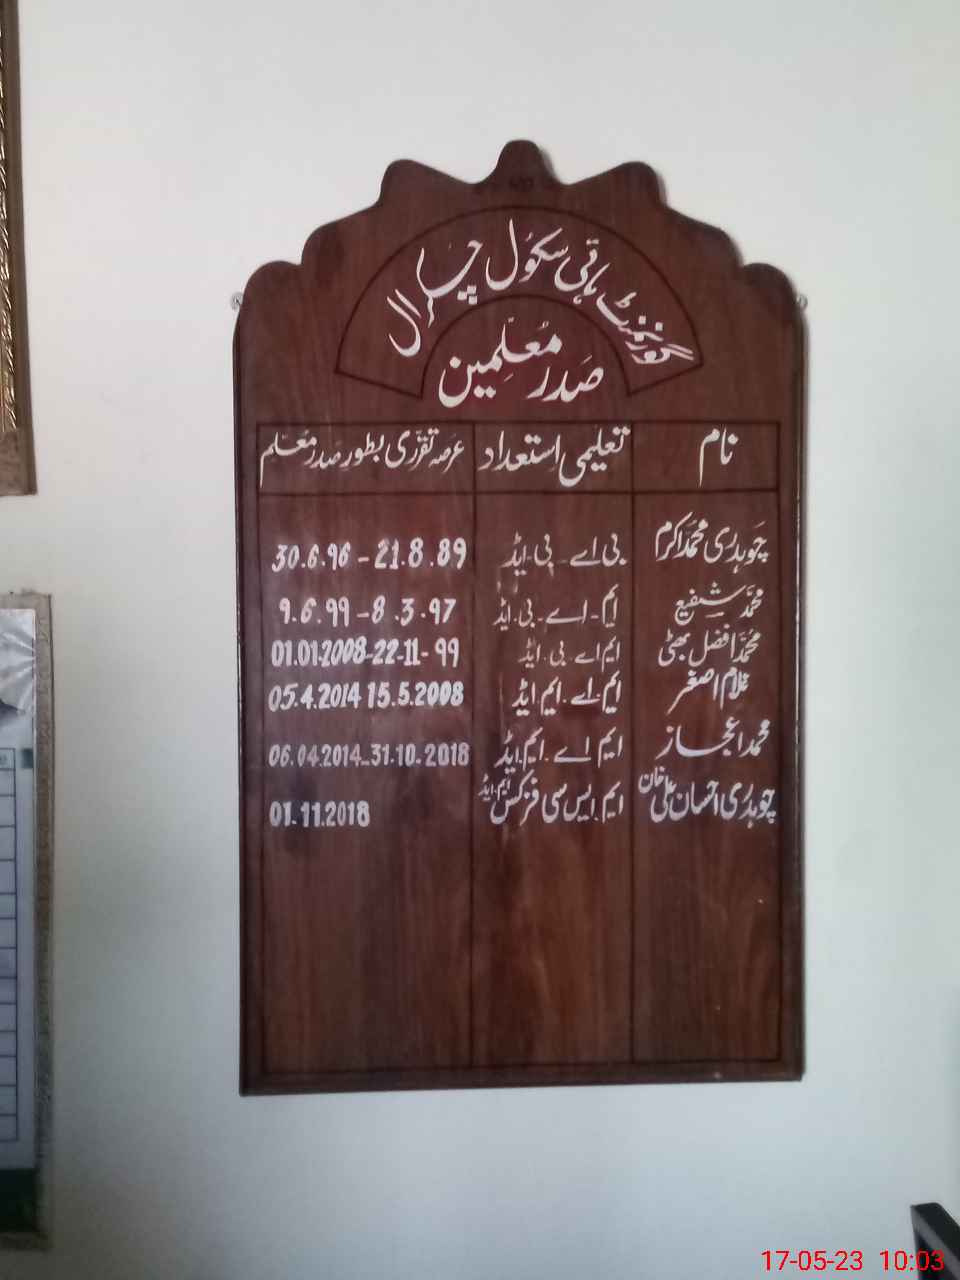 گورنمنٹ ہائی سکول چہرال
صدر معلمین
نام تعلیمی استعداد عرصہ تقرری بطور صدر معلم
چوہدری محمد اکرم بی اے - بی ایڈ 30.6.96 - 21.8.89
محمد شفیع ایم - اے - بی ایڈ 9.6.99 - 8.3.97
محمد افضل بھٹی ایم اے بی ایڈ 01.01.2008-22-11-99
غلام اصغر ایم - اے - ایم ایڈ 05.4.2014 15.5.2008
محمد اعجاز ایم اے - ایم ایڈ 06.04.2014-31.10.2018
چوہدری احسان علی خان ایم ایس سی فزکس ایم ایڈ 01.11.2018
17-05-23 10:03